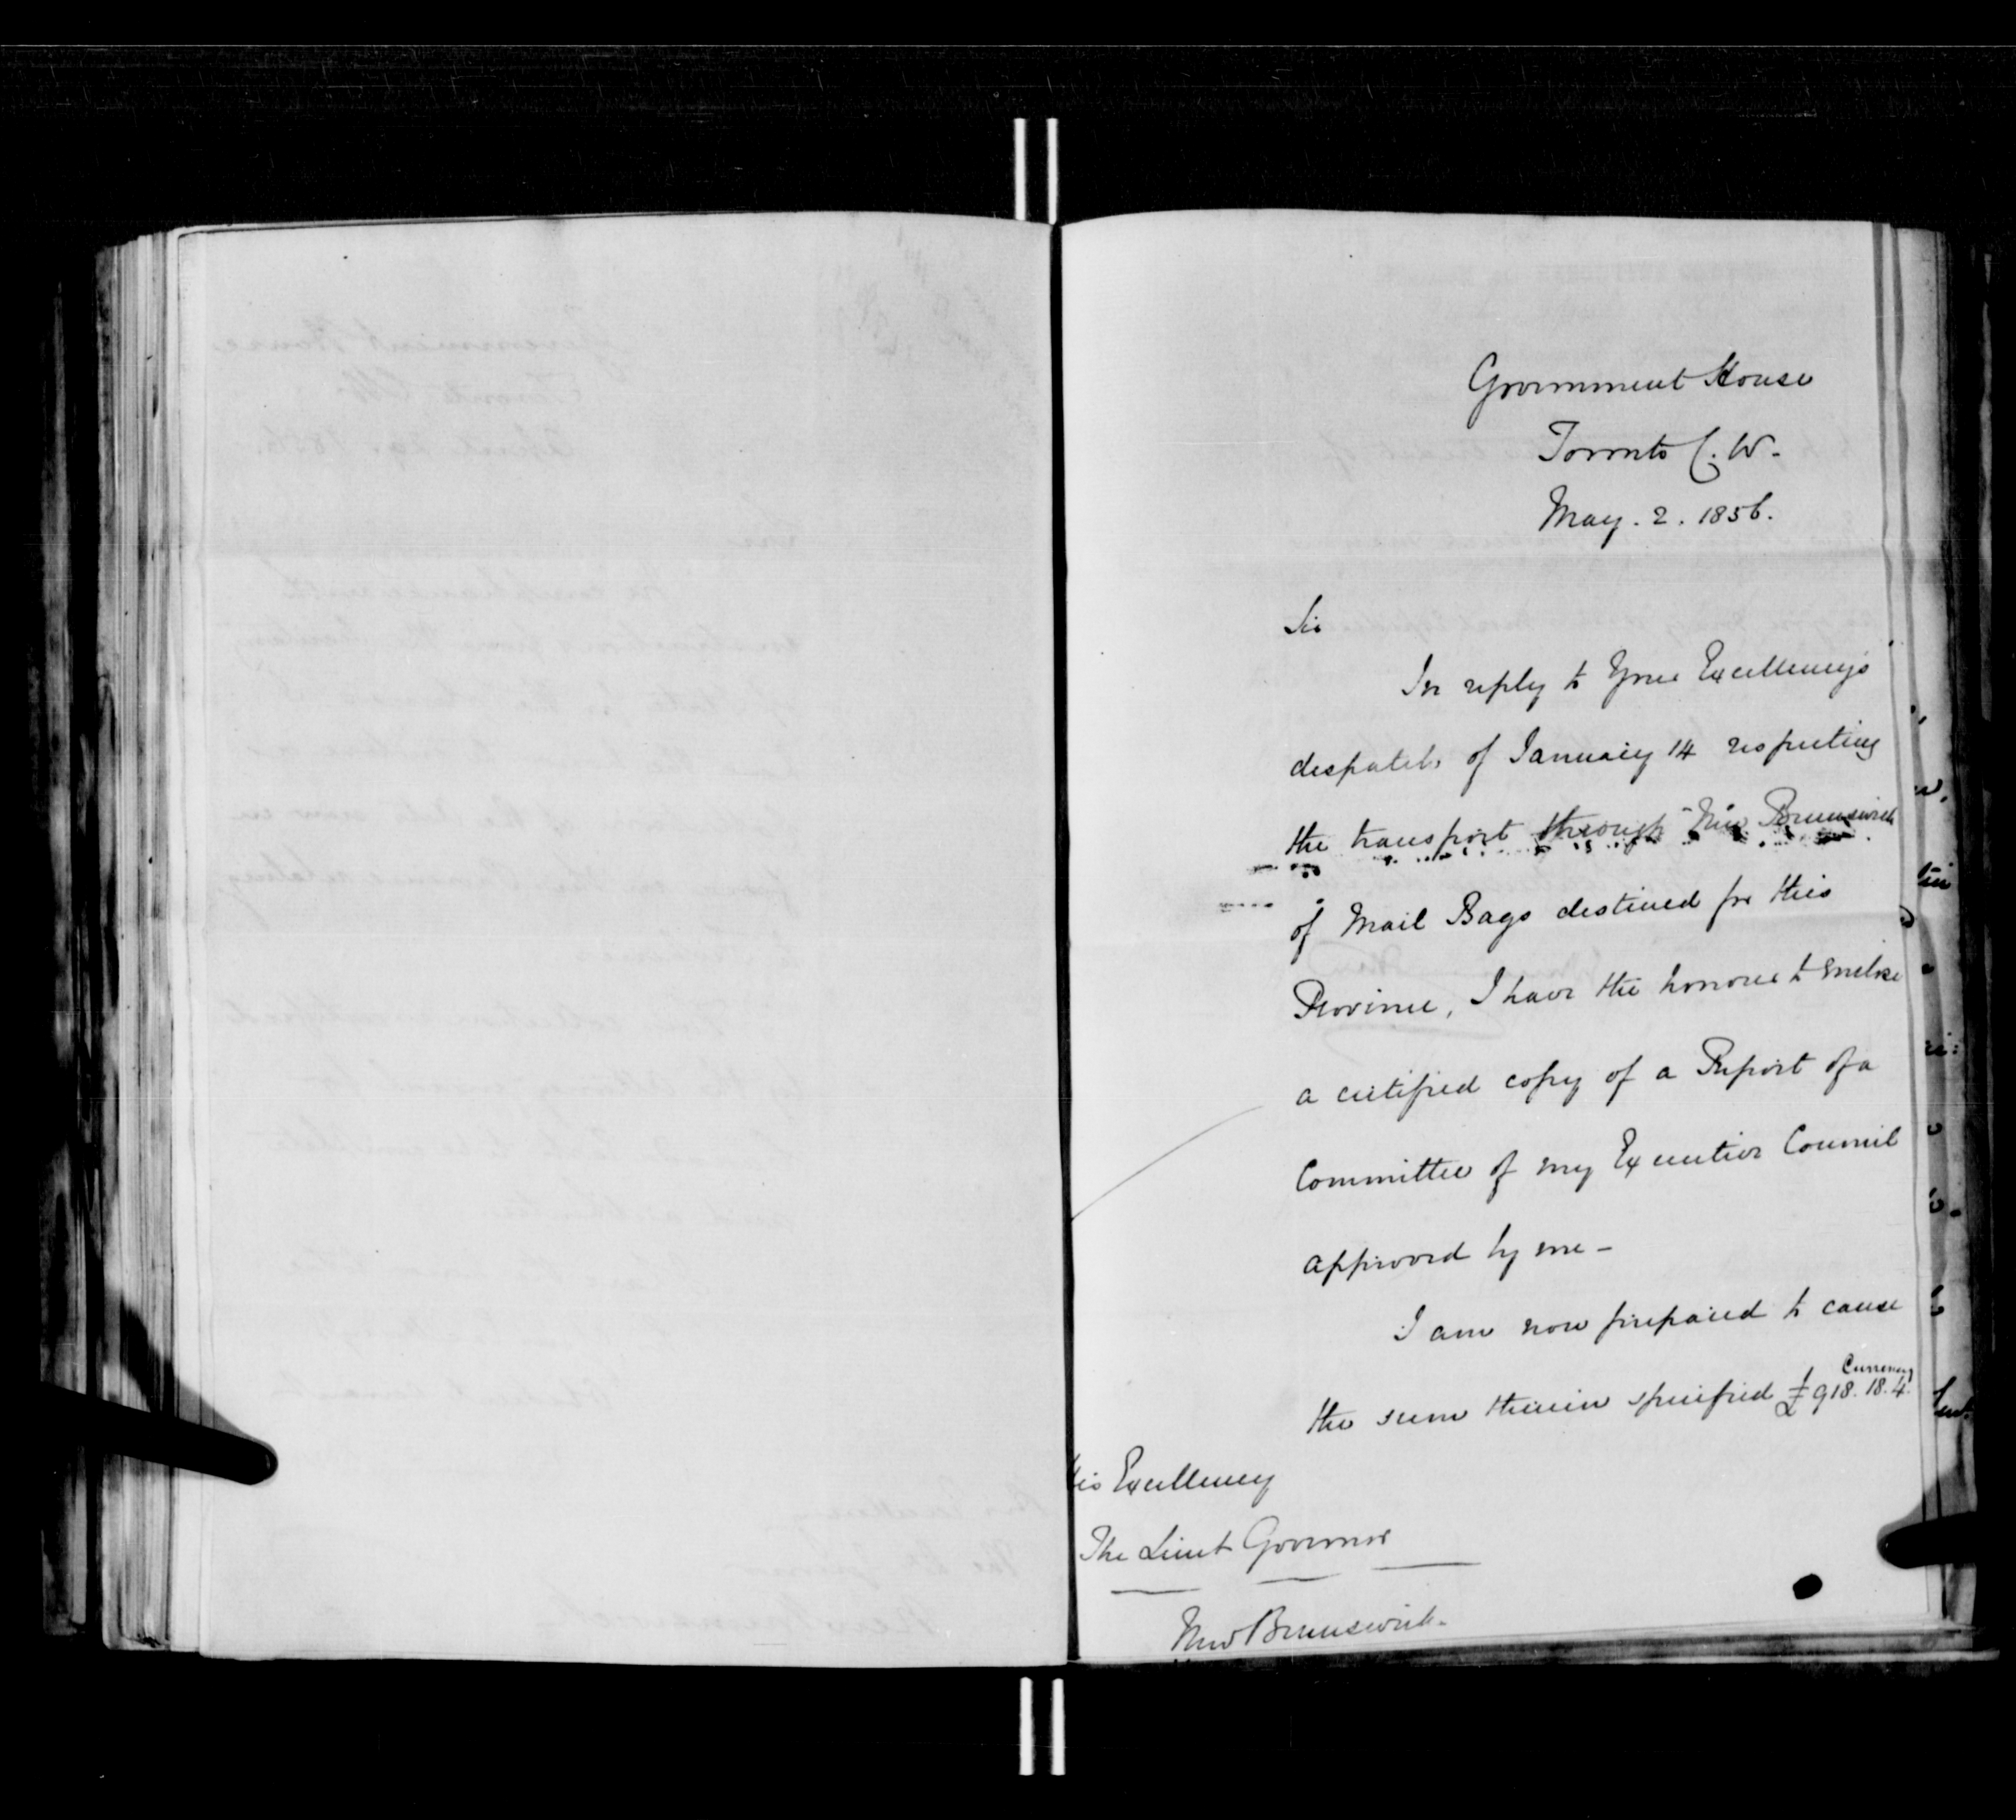 Government House
Toronto C. W.
May. 2. 1856.
Sir
In reply to Your Excellency's
despatch of January 14 respecting
the transport through New Brunswick
of Mail Bags destined for this
Province, I have the honour to enclose
a certified copy of a Report of a
Committee of my Executive Council
approved by me —
I am now prepared to cause
the sum therein specified £918. 18. 4. Currency
His Excellency
The Lieut Governor
New Brunswick.